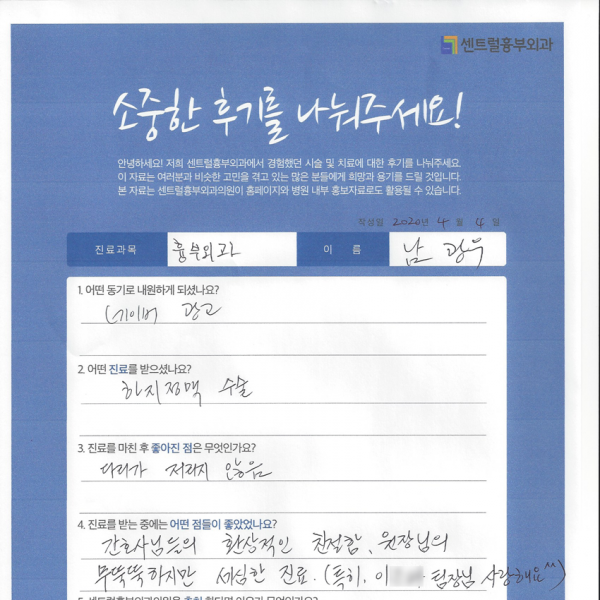 센트럴흉부외과
소중한 후기를 나눠주세요!
안녕하세요! 저희 센트럴흉부외과에서 경험했던 시술 및 치료에 대한 후기를 나눠주세요.
이 자료는 여러분과 비슷한 고민을 겪고 있는 많은 분들에게 희망과 용기를 드릴 것입니다.
본 자료는 센트럴흉부외과의원이 홈페이지와 병원 내부 홍보자료로도 활용될 수 있습니다.
작성일 2020년 4월 4일
진료과목 흉부외과 이 름 남광우
1. 어떤 동기로 내원하게 되셨나요?
네이버 광고
2. 어떤 진료를 받으셨나요?
하지정맥 수술
3. 진료를 마친 후 좋아진 점은 무엇인가요?
다리가 저리지 않음
4. 진료를 받는 중에는 어떤 점들이 좋았었나요?
간호사님들의 환상적인 친절함, 원장님의
무뚝뚝하지만 세심한 진료. (특히, 이 팀장님 사랑해요^^)